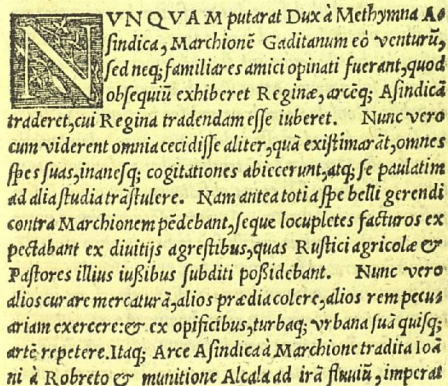 NVNQVAM putarat Dux à Methymna As
sindica, Marchionē Gaditanum eò venturū,
sed neq; familiares amici opinati fuerant, quod
obsequiū exhiberet Reginæ, arcēq; Asindicā
traderet, cui Regina tradendam esse iuberet. Nunc vero
cum viderent omnia cecidisse aliter, quā existimarāt, omnes
spes suas, inanesq; cogitationes abiecerunt, atq; se paulatim
ad alia studia trāstulere. Nam antea toti a spe belli gerendi
contra Marchionem pēdebant, seque locupletes facturos ex
pectabant ex diuitijs agrestibus, quas Rustici agricolæ &
Pastores illius iußibus subditi poßidebant. Nunc vero
alios curare mercaturā, alios prædia colere, alios rem pecus
ariam exercere: & ex opificibus, turbaq; vrbana suā quisq;
artē repetere. Itaq; Arce Asindica à Marchione tradita Ioā
ni à Robreto & munitione Alcala ad irā fluuiū, imperat